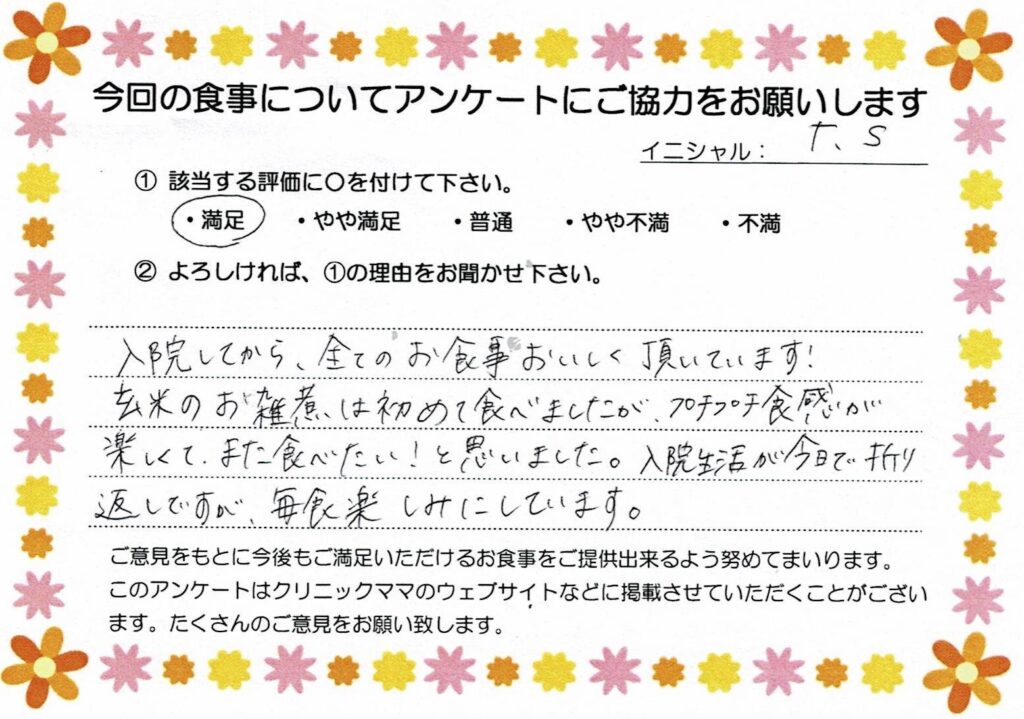 今回の食事についてアンケートにご協力をお願いします
イニシャル： T、S
① 該当する評価に〇を付けて下さい。
・満足 ・やや満足 ・普通 ・やや不満 ・不満
② よろしければ、①の理由をお聞かせ下さい。
入院してから、全てのお食事おいしく頂いています!
玄米のお雑煮は初めて食べましたが、プチプチ食感が
楽しくて、また食べたい!と思いました。入院生活が今日で折り
返しですが、毎食楽しみにしています。
ご意見をもとに今後もご満足いただけるお食事をご提供出来るよう努めてまいります。
このアンケートはクリニックママのウェブサイトなどに掲載させていただくことがござい
ます。たくさんのご意見をお願い致します。